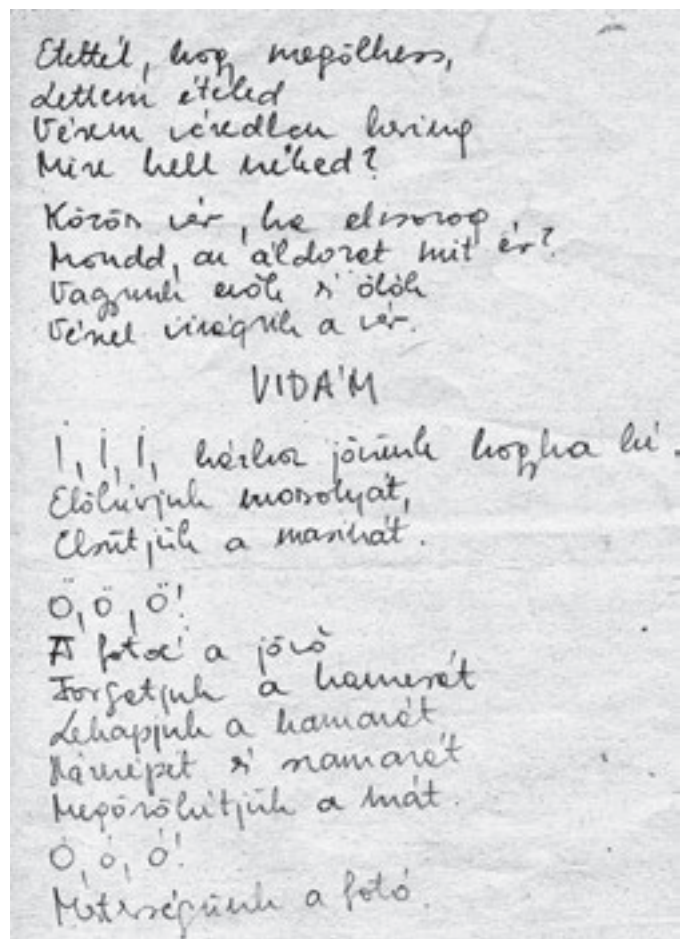 Etettél, hogy megölhess,
Lettem ételed
Vérem véredben kering
Mire kell néked?
Közös vér, ha elcsorog
Mondd, az áldozat mit ér?
Vagyunk evők s ölők
Vérrel virágzik a vér.
VIDÁM
Í, Í, Í, házhoz jövünk hogyha hí.
Előhívjuk mosolyát,
Elsütjük a masinát.
Ő, ő, ő!
A fotóé a jövő
Forgatjuk a kamerát
Lekapjuk a kamarát
Háznépét s szamarát
Megörökítjük a mát.
Ó, ó, ó!
Mesterségünk a fotó.